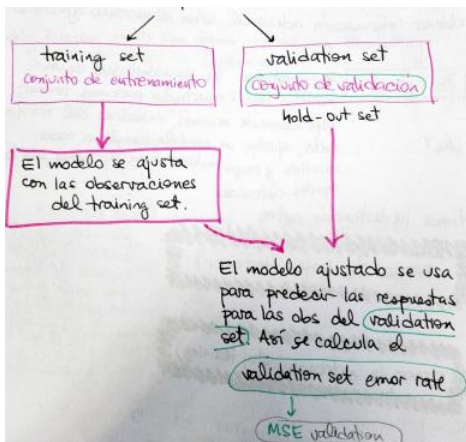 training set
conjunto de entrenamiento
validation set
conjunto de validación
hold-out set
El modelo se ajusta
con las observaciones
del training set.
El modelo ajustado se usa
para predecir las respuestas
para las obs del validation
set. Así se calcula el
validation set error rate
MSE validation